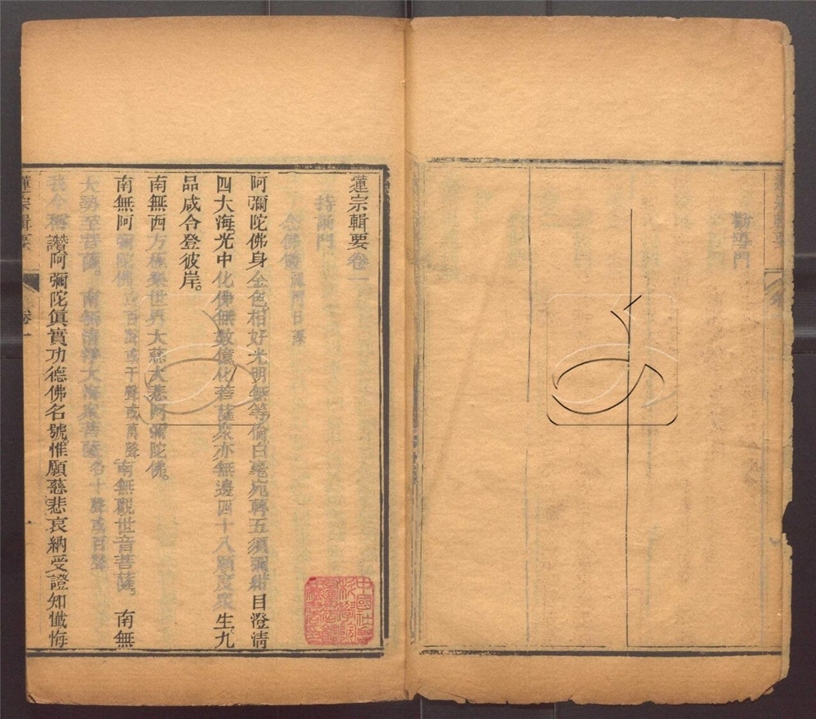 勸導門
蓮宗輯要卷一
持誦門
念佛儀
阿彌陀佛身金色相好光明無等倫白毫宛轉五須彌紺目澄清
四大海光中化佛無數億化菩薩眾亦無邊四十八願度眾生九
品咸令登彼岸。
南無西方極樂世界大慈大悲阿彌陀佛。
南無阿彌陀佛或百聲或千聲或萬聲南無觀世音菩薩。南無
大勢至菩薩。南無清淨大海眾菩薩各十聲或百聲
我今稱讚阿彌陀真實功德佛名號惟願慈悲哀納受證知懺悔
蓮宗輯要 卷一 一